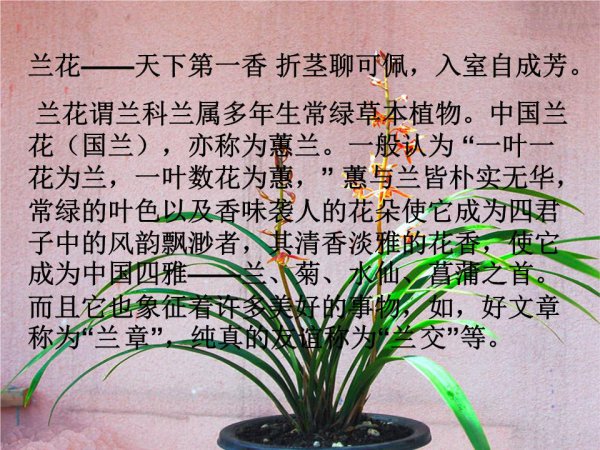 兰花——天下第一香 折茎聊可佩，入室自成芳。
兰花谓兰科兰属多年生常绿草本植物。中国兰
花（国兰），亦称为蕙兰。一般认为 “一叶一
花为兰，一叶数花为蕙，” 蕙与兰皆朴实无华，
常绿的叶色以及香味袭人的花朵使它成为四君
子中的风韵飘渺者，其清香淡雅的花香，使它
成为中国四雅——兰、菊、水仙、菖蒲之首。
而且它也象征着许多美好的事物，如，好文章
称为“兰章”，纯真的友谊称为“兰交”等。